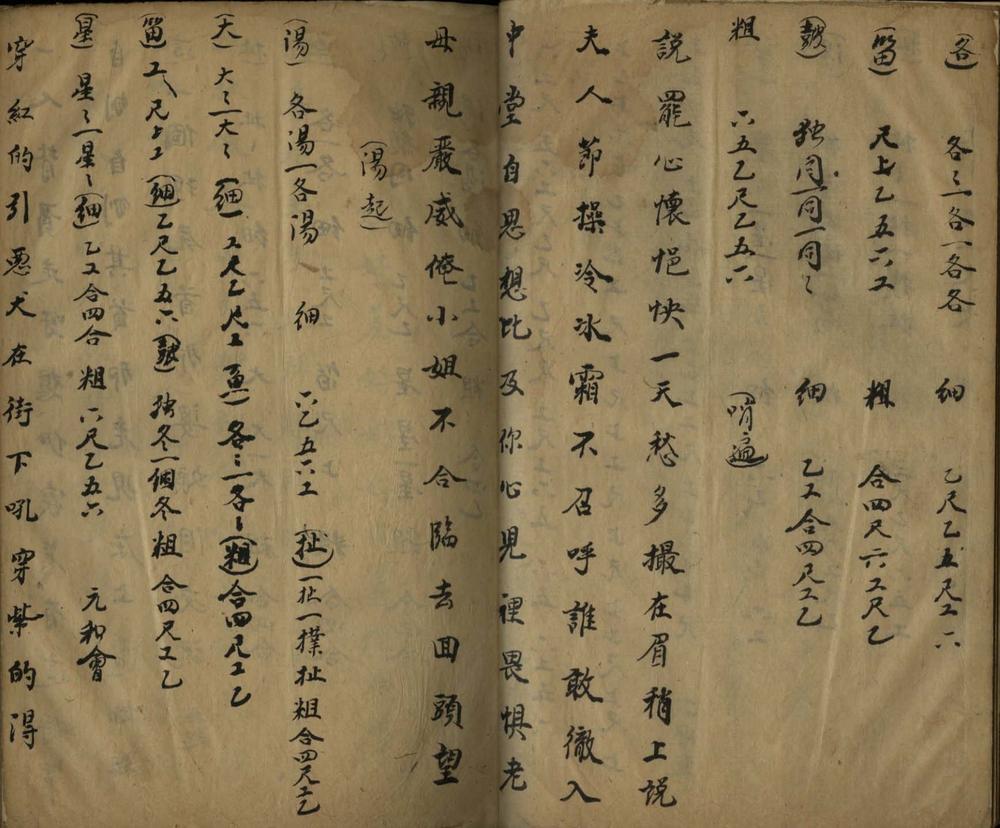 (各) 各〻一各一各各 細 乙尺乙五尺工六
(笛) 尺上乙五六工 粗 合四尺六工尺乙
(鼓) 独同一同一同〻 細 乙工合四尺工乙
粗 六五乙尺乙五六 (哨遍)
說罷心懷悒怏一天愁多撮在眉稍上說
夫人節操冷冰霜不召呼誰敢徹入
中堂自思想比及你心見裡畏惧老
母親嚴威倦小姐不合臨去回頭望
(湯起)
(湯) 各湯一各湯 細 六乙五六工 (扯) 一扯一撲扯粗合四尺工乙
(大) 大〻一大〻 (細) 工尺乙尺工 各〻一各〻 (粗) 合四尺工乙
(笛) 工尺上工 (細) 乙尺乙五六 (鼓) 独冬一個冬粗 合四尺工乙
(星) 星〻一星〻 (細) 乙工合四合 粗 六尺乙五六 元和會
穿紅的引惡犬在街下吼穿紫的得